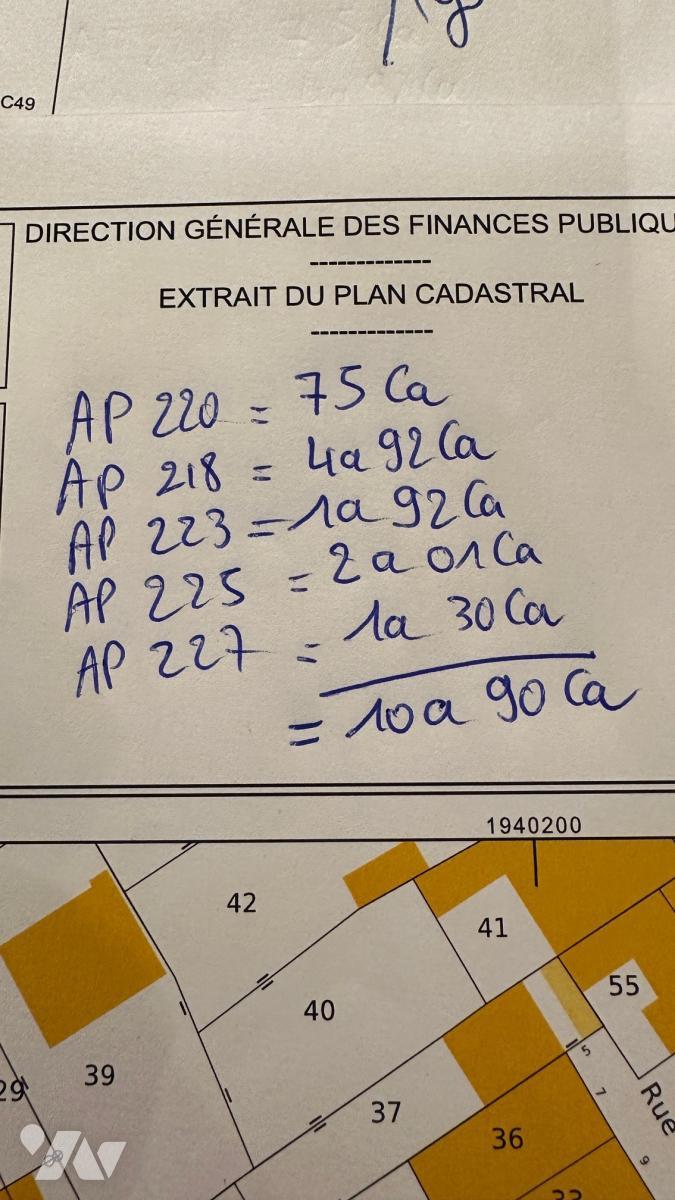 C49
DIRECTION GÉNÉRALE DES FINANCES PUBLIQU
-------------
EXTRAIT DU PLAN CADASTRAL
-------------
AP 220 = 75 Ca
AP 218 = 4a 92 Ca
AP 223 = 1a 92 Ca
AP 225 = 2a 01 Ca
AP 227 = 1a 30 Ca
= 10a 90 Ca
1940200
42
41
55
40
39
29
37
36
5
7
9
Rue
33